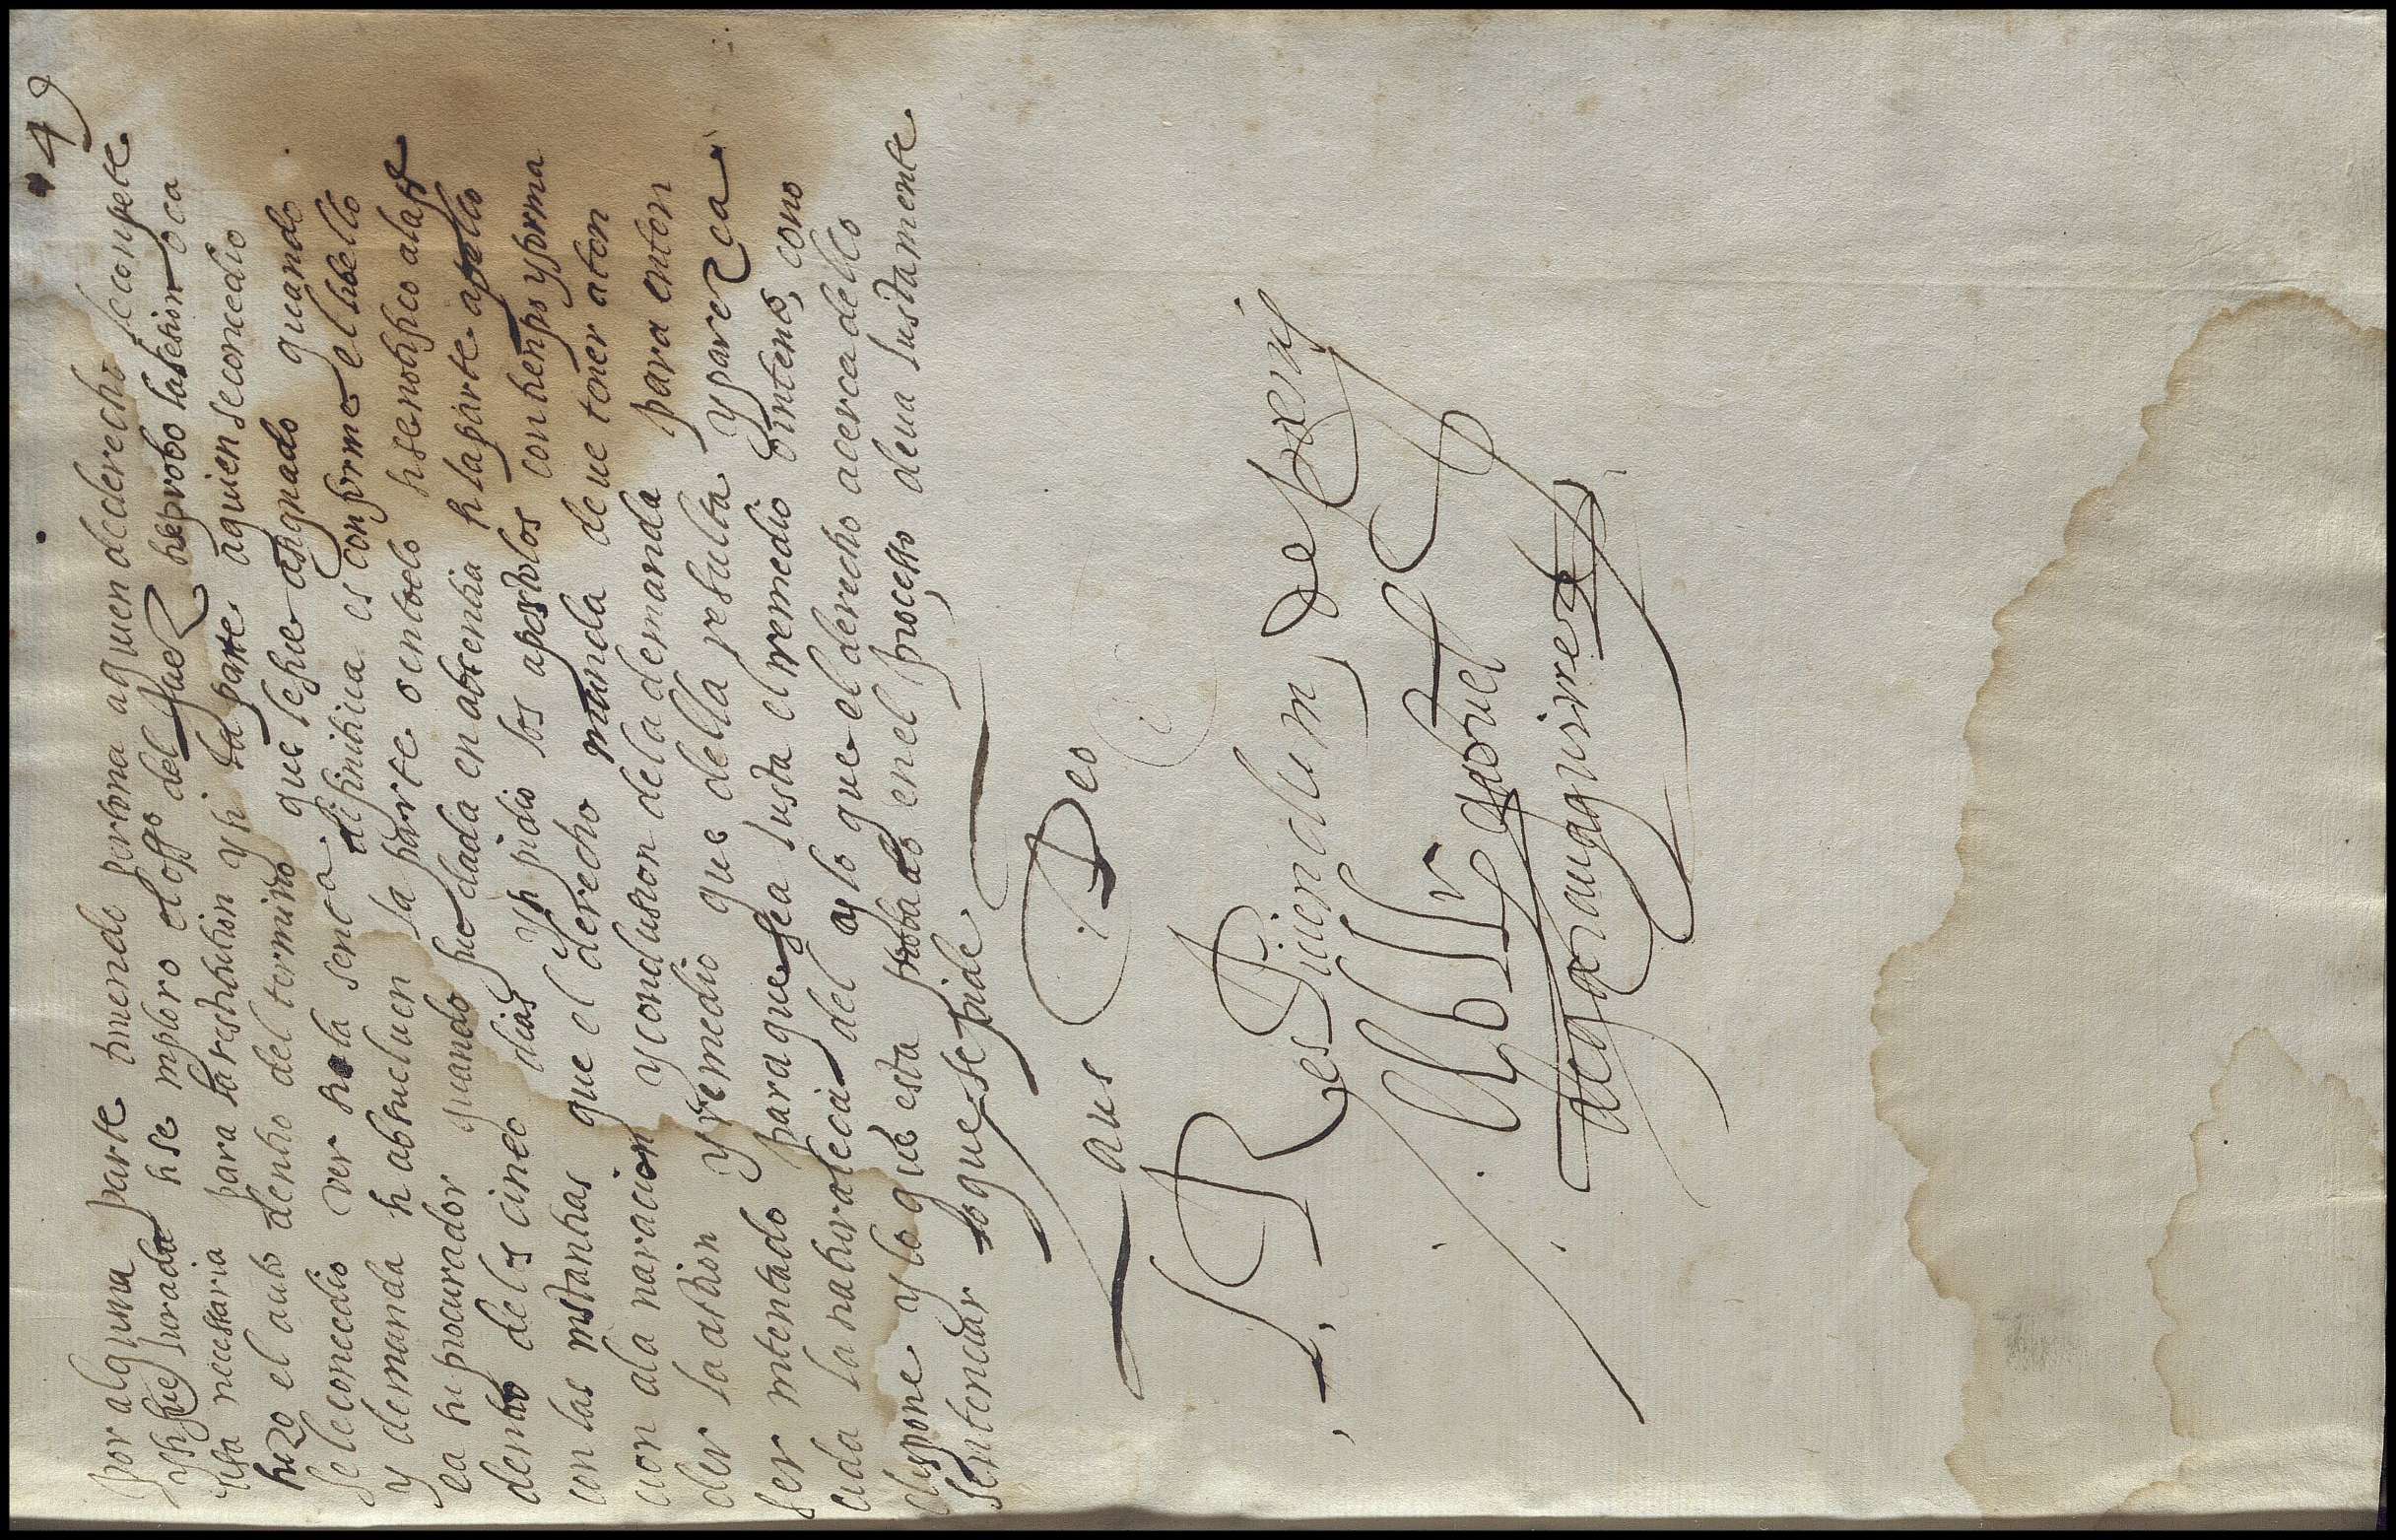 49
por alguna parte siniendo persona a quien de derecho se compete
y si fue jurada si se inploro el offo del juez si se provo la lesion o ca
usa necessaria para la restitution y si la parte a quien se concedio
hizo el auto dentro del termino que le fue asignado quando
se le concedio ver si la senca difinitiva es conforme el libello
y demanda si absueluen la parte o en todo si se notifico a la p
ea su procurador quando fue dada en absentia si la parte apello
dentro de los cinco dias y si pidio los apostolos con tienpo y forma
con las instantias que el derecho manda deue tener aten
cion a la naracion y conclusion de la demanda para enten
der la action y remedio que della resulta y parezca
ser intentado para que sea justa el remedio o intento, cono
cida la naturaleca del y lo que el derecho acerca dello
dispone y lo que esta probado en el processo, deua justamente
sentenciar lo que se pide
Laus Deo
Respiciendum, de
gabriel